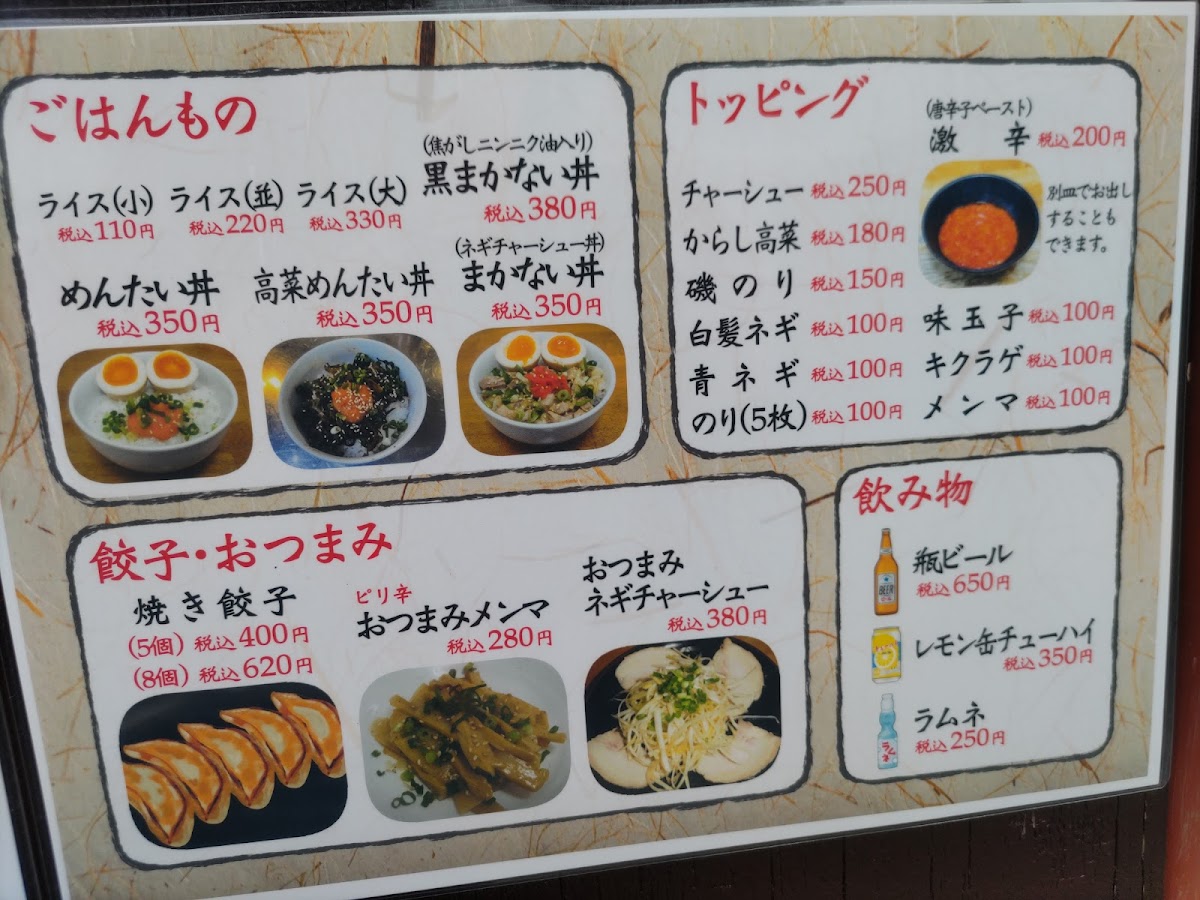 ごはんもの
ライス(小)
税込110円
ライス(並)
税込220円
ライス(大)
税込330円
(焦がしニンニク油入り)
黒まかない丼
税込380円
めんたい丼
税込350円
高菜めんたい丼
税込350円
(ネギチャーシュー丼)
まかない丼
税込350円
トッピング
(唐辛子ペースト)
激辛 税込200円
別皿でお出し
することも
できます。
チャーシュー 税込250円
からし高菜 税込180円
磯のり 税込150円
白髪ネギ 税込100円
青ネギ 税込100円
のり(5枚) 税込100円
味玉子 税込100円
キクラゲ 税込100円
メンマ 税込100円
餃子・おつまみ
焼き餃子
(5個) 税込400円
(8個) 税込620円
ピリ辛
おつまみメンマ
税込280円
おつまみ
ネギチャーシュー
税込380円
飲み物
BEER
瓶ビール
税込650円
レモン缶チューハイ
税込350円
ラムネ
ラムネ
税込250円